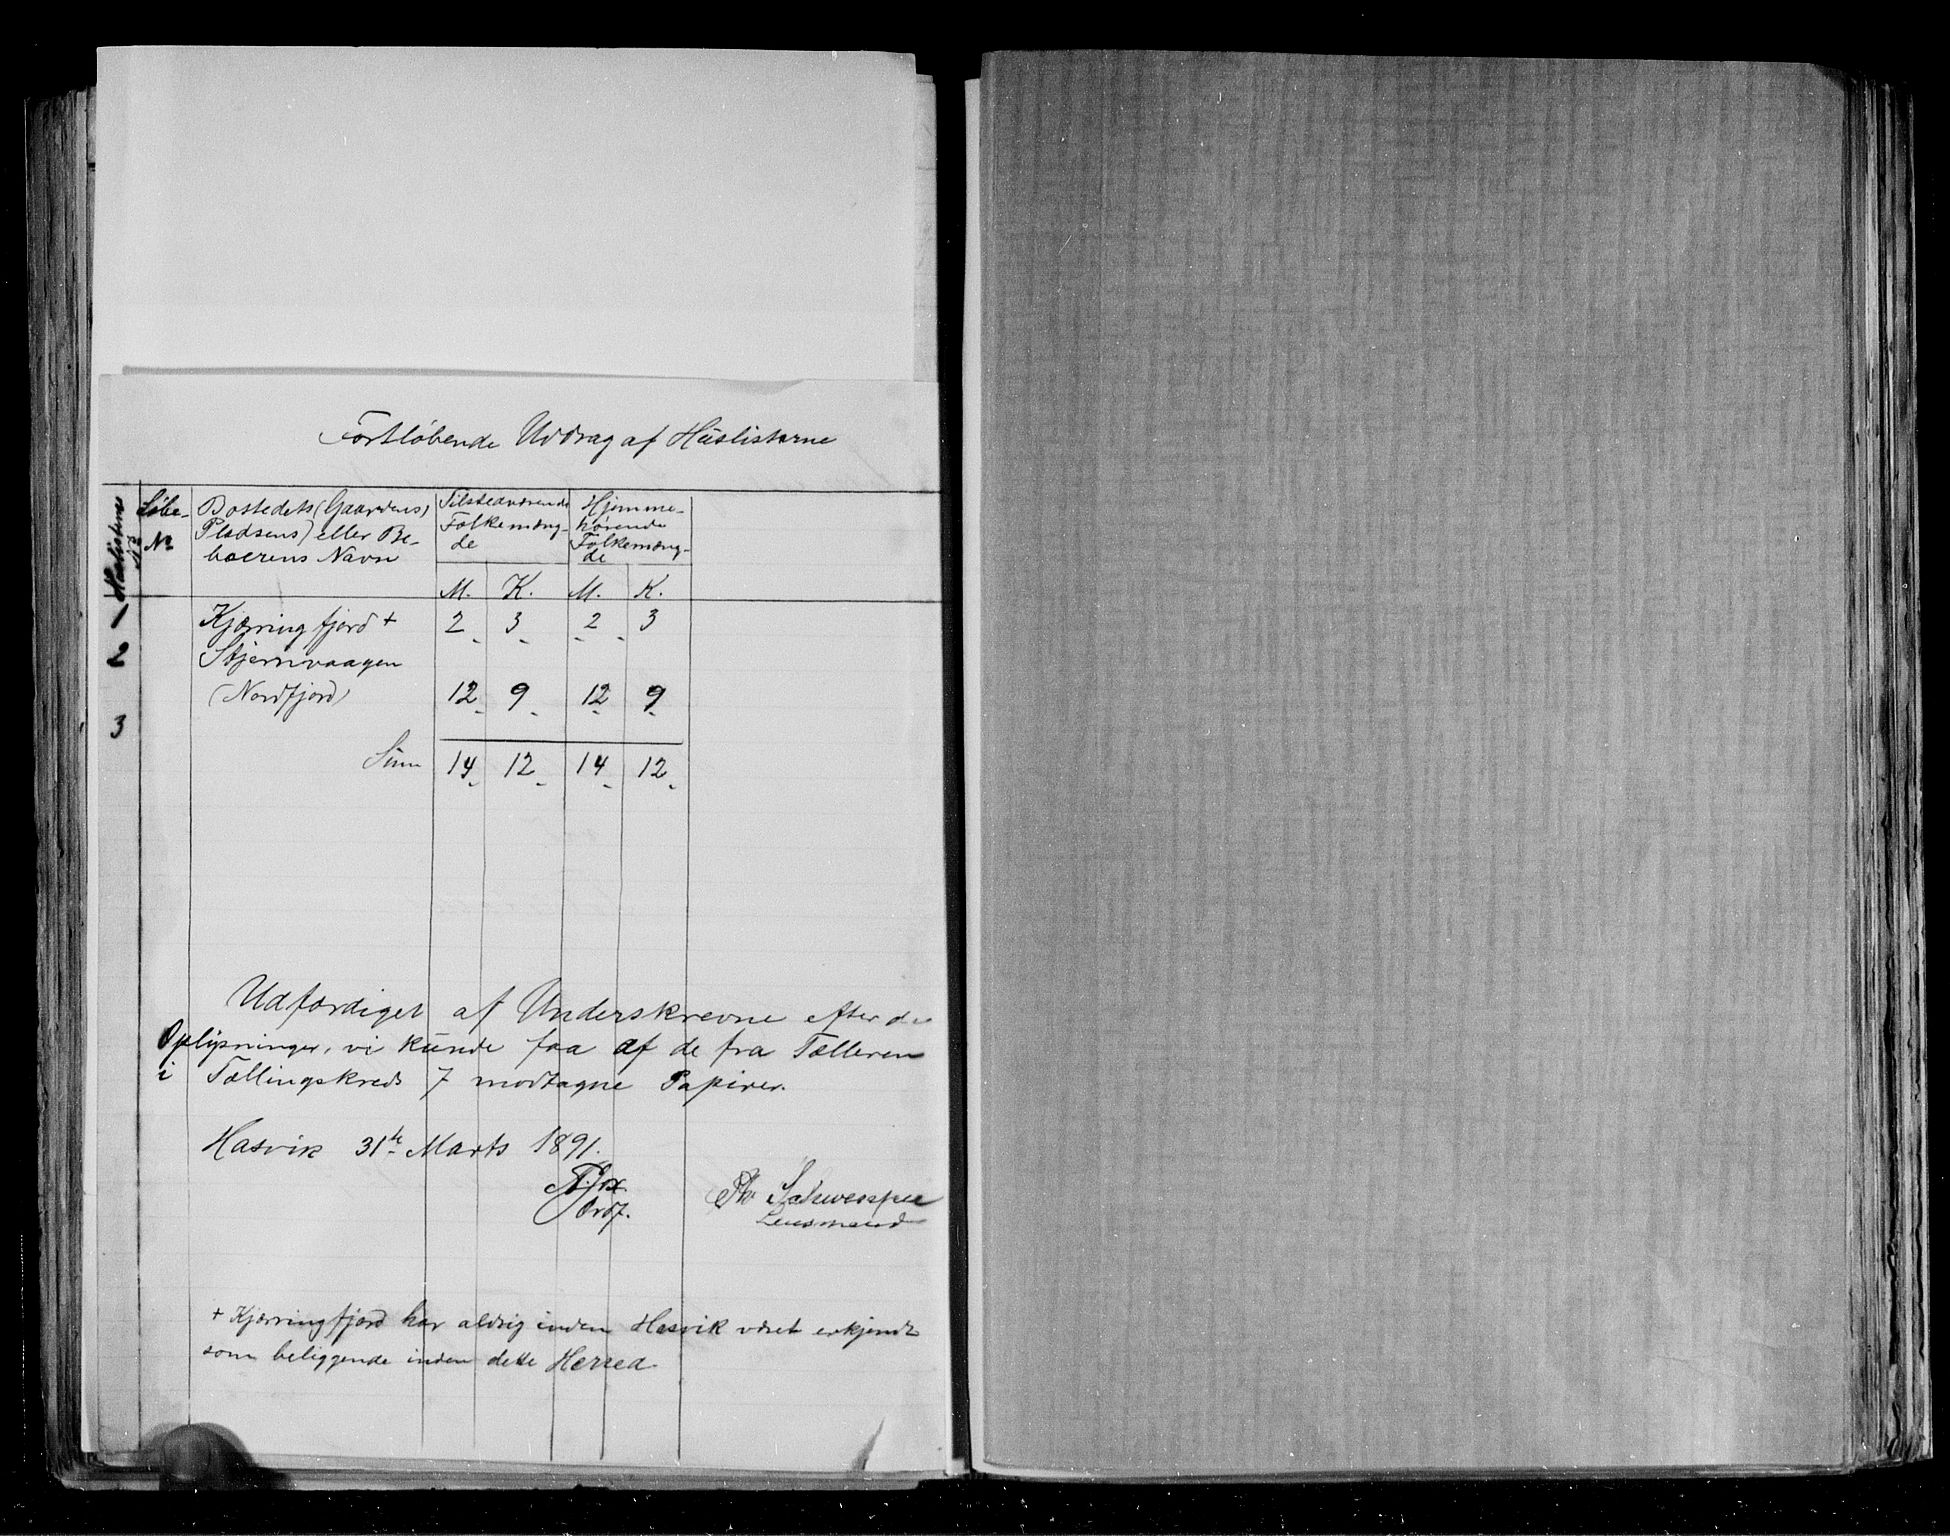 Fortløbende Uddrag af Huslisterne
Huslistens N°
Løbe-
N°
Bostedets (Gaardens,
Pladsens) eller Be-
boerens Navn
Tilstedeværende
Folkemæng-
de
Hjemme-
hørende
Folkemæng-
de
M. K. M. K.
1 Kjærringfjord + 2 3 2 3
2 Stjernvaagen
(Nordfjord) 12 9 12 9
3
Sum 14 12 14 12
Udfærdiget af Underskrevne efter de
Oplysninger, vi kunde faa af de fra Tælleren
i Tællingskreds 7 modtagne Papirer.
Hasvik 31te Marts 1891.
Ordf.
Lensmand
+ Kjærringfjord har aldrig inden Hasvik været erkjendt
som beliggende inden dette Herred